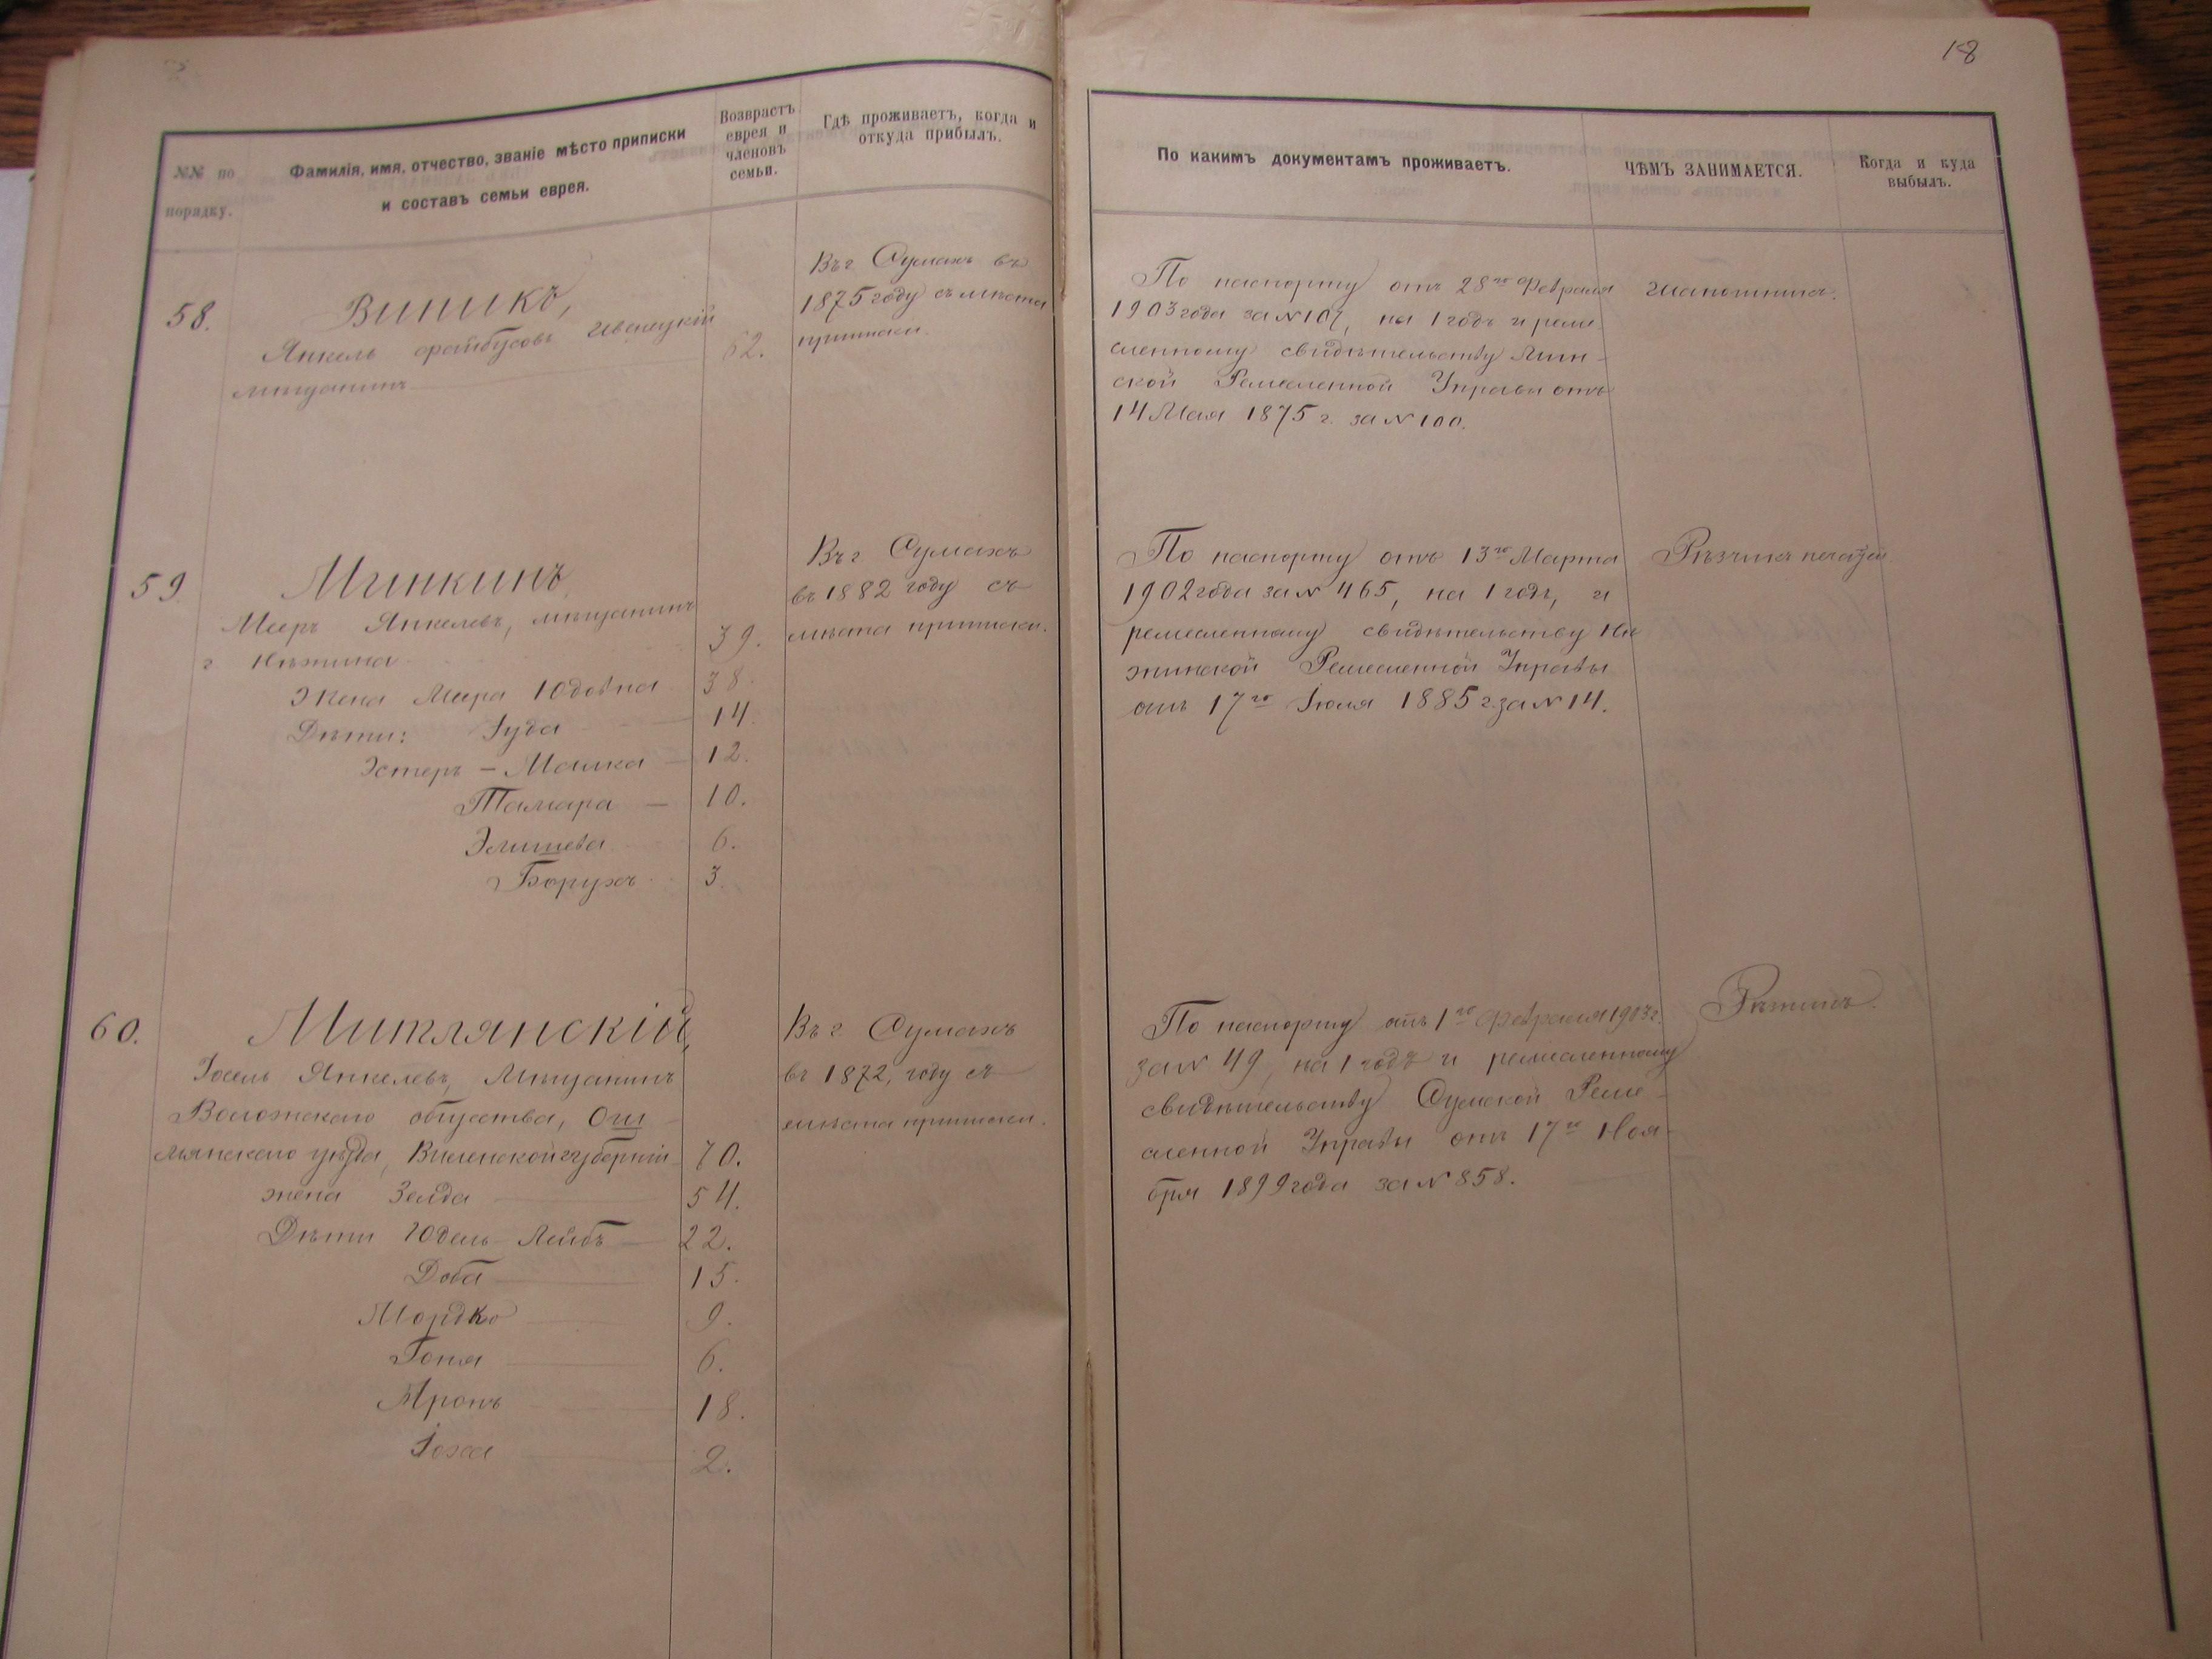 18
№№ по
порядку.
Фамилія, имя, отчество, званіе мѣсто приписки
и составъ семьи еврея.
Возврастъ
еврея и
членовъ
семьи.
Гдѣ проживаетъ, когда и
откуда прибылъ.
По какимъ документамъ проживаетъ.
ЧѢМЪ ЗАНИМАЕТСЯ.
Когда и куда
выбылъ.
58.
Виникъ,
Янкель Файбусовъ Ивенецкій
мѣщанинъ
62.
Въ г. Сумахъ въ
1875 году съ мѣста
приписки.
По паспорту отъ 28го Февраля
1903 года за № 107, на 1 годъ и реме-
сленному свидѣтельству Мин-
ской Ремесленной Управы отъ
14 Мая 1875 г. за № 100.
Шапошникъ.
59.
Минкинъ,
Мееръ Янкелевъ, мѣщанинъ
г. Нѣжина
39.
Жена Меера Юдовна 38.
Дѣти: Іуда 14.
Эстеръ - Малка 12.
Тамара 10.
Элишева 6.
Борухъ 3.
Въ г. Сумахъ
въ 1882 году съ
мѣста приписки.
По паспорту отъ 13го Марта
1902 года за № 465, на 1 годъ, и
ремесленному свидѣтельству Нѣ
жинской Ремесленной Управы
отъ 17го Іюля 1885 г. за № 14.
Рѣзчикъ печатей
60.
Митлянскій,
Іосель Янкелевъ, Мѣщанинъ
Воложскаго общества, Ош
мянскаго уѣзда, Виленской губерніи 70.
жена Зелда 54.
Дѣти Юдель-Лейбъ 22.
Доба 15.
Мордко 9.
Геня 6.
Аронъ 18.
Іоха 2.
Въ г. Сумахъ
въ 1872, году съ
мѣста приписки.
По паспорту отъ 1го Февраля 1903 г.
за № 49, на 1 годъ и ремесленному
свидѣтельству Сумской Реме-
сленной Управы отъ 17го Ноя-
бря 1899 года за № 858.